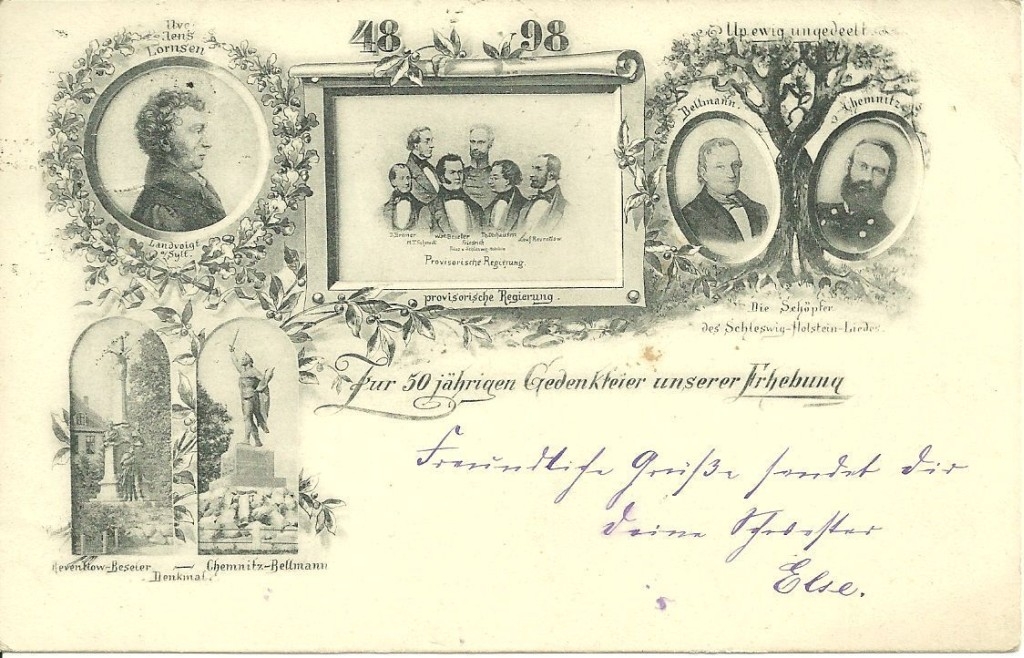 Uve
Jens
Lornsen
Landvoigt
a/Sylt.
48 98
W. Beseler
Provisorische Regierung.
provisorische Regierung.
Up ewig ungedeelt
Bellmann.
Chemnitz
Die Schöpfer
des Schleswig-Holstein-Liedes.
Zur 50 jährigen Gedenkfeier unserer Erhebung
Reventlow-Beseler — Chemnitz-Bellmann
Denkmal.
Freundliche Grüße sendet Dir
Deine Schwester
Else.